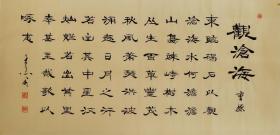 觀滄海
曹操
東臨碣石以觀
滄海水何澹澹
山島竦峙樹木
丛生百草豐茂
秋風蕭瑟洪波
涌起日月之行
若出其中星漢
燦爛若出其里
幸甚至哉歌以
咏志